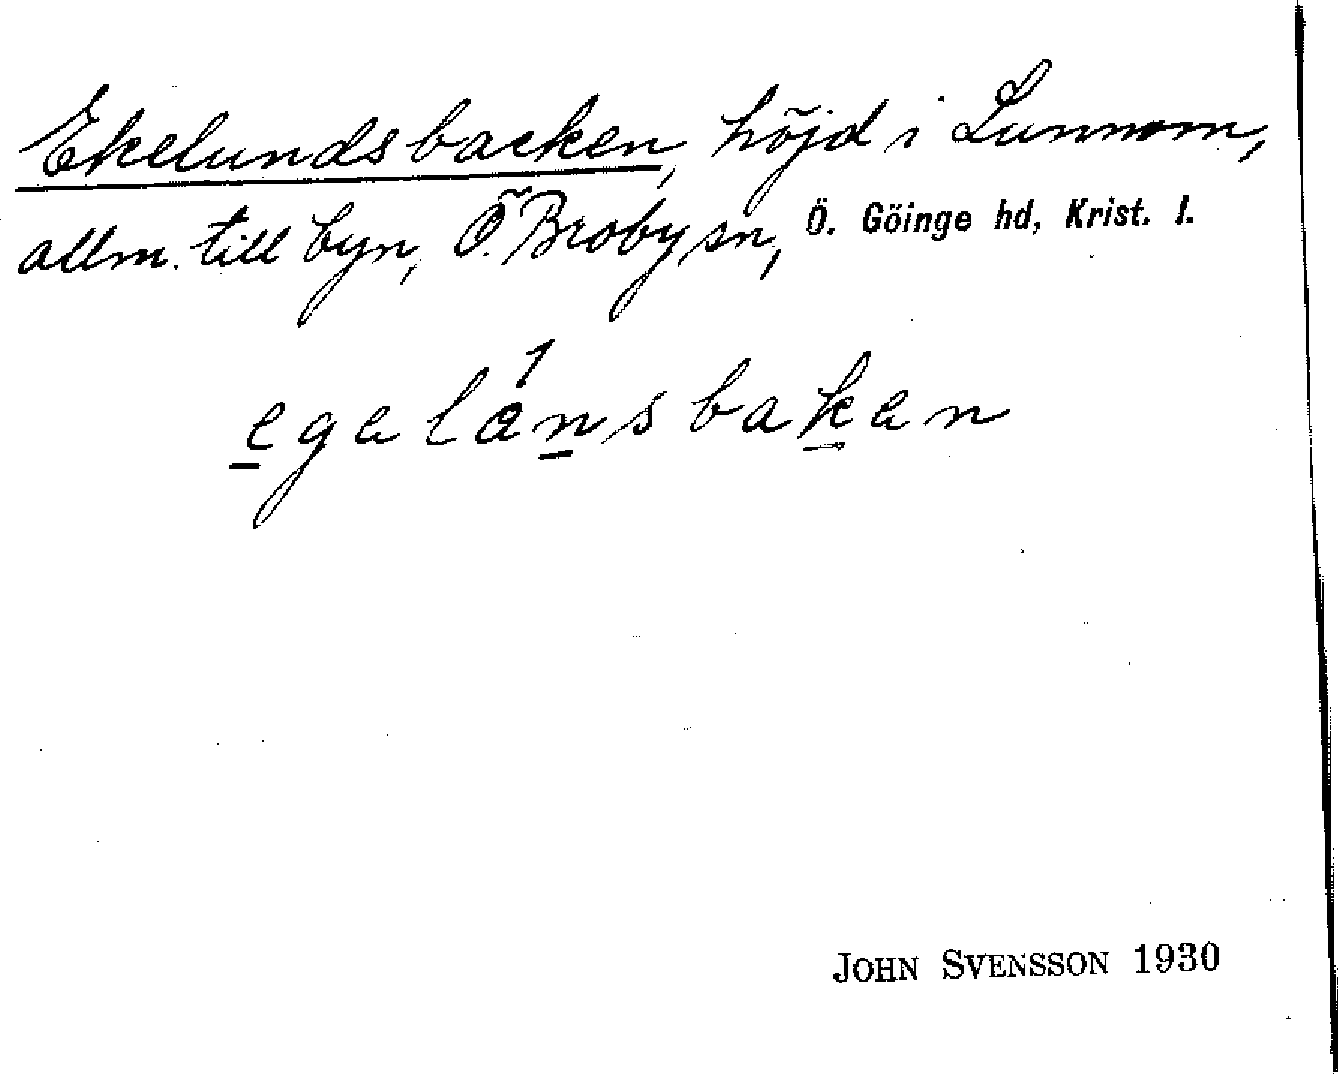 Ekelundsbacken, höjd i Lunnom,
allm. till byn, Ö. Broby sn, Ö. Göinge hd, Krist. l.
egelánsbaken
JOHN SVENSSON 1930